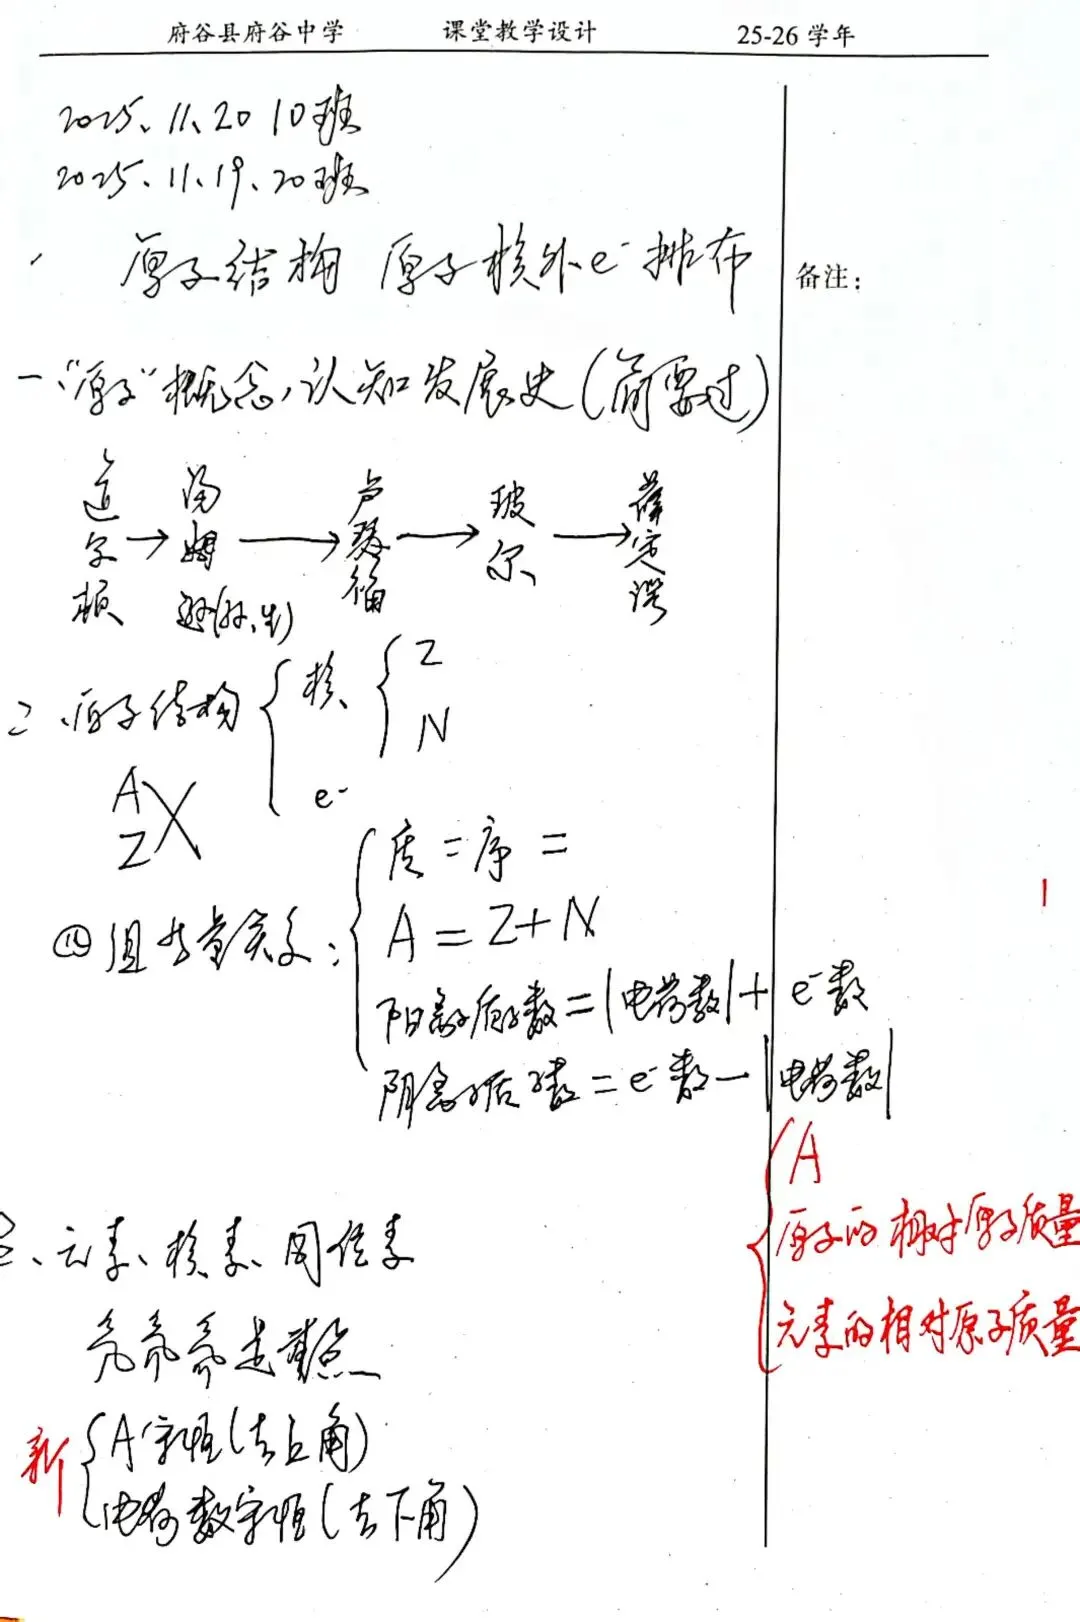 府谷县府谷中学 课堂教学设计 25-26 学年
2025、11、20 10班
2025、11、19、20班
原子结构 原子核外e⁻排布
备注：
一、"原子"概念，认知发展史(简要过)
道尔顿→汤姆逊(孙、生)→卢瑟福→玻尔→薛定谔
二、原子结构 { 核 { Z
N
e⁻
A
Z X
⑩ 组 量关系：
质=序=
A=Z+N
阳离子质子数=|电荷数|+e⁻数
阴离子质子数=e⁻数-|电荷数|
A
原子的相对原子质量
元素的相对原子质量
三、元素、核素、同位素
氕氘氚是难点
新 { A守恒(左上角)
电荷数守恒(左下角)